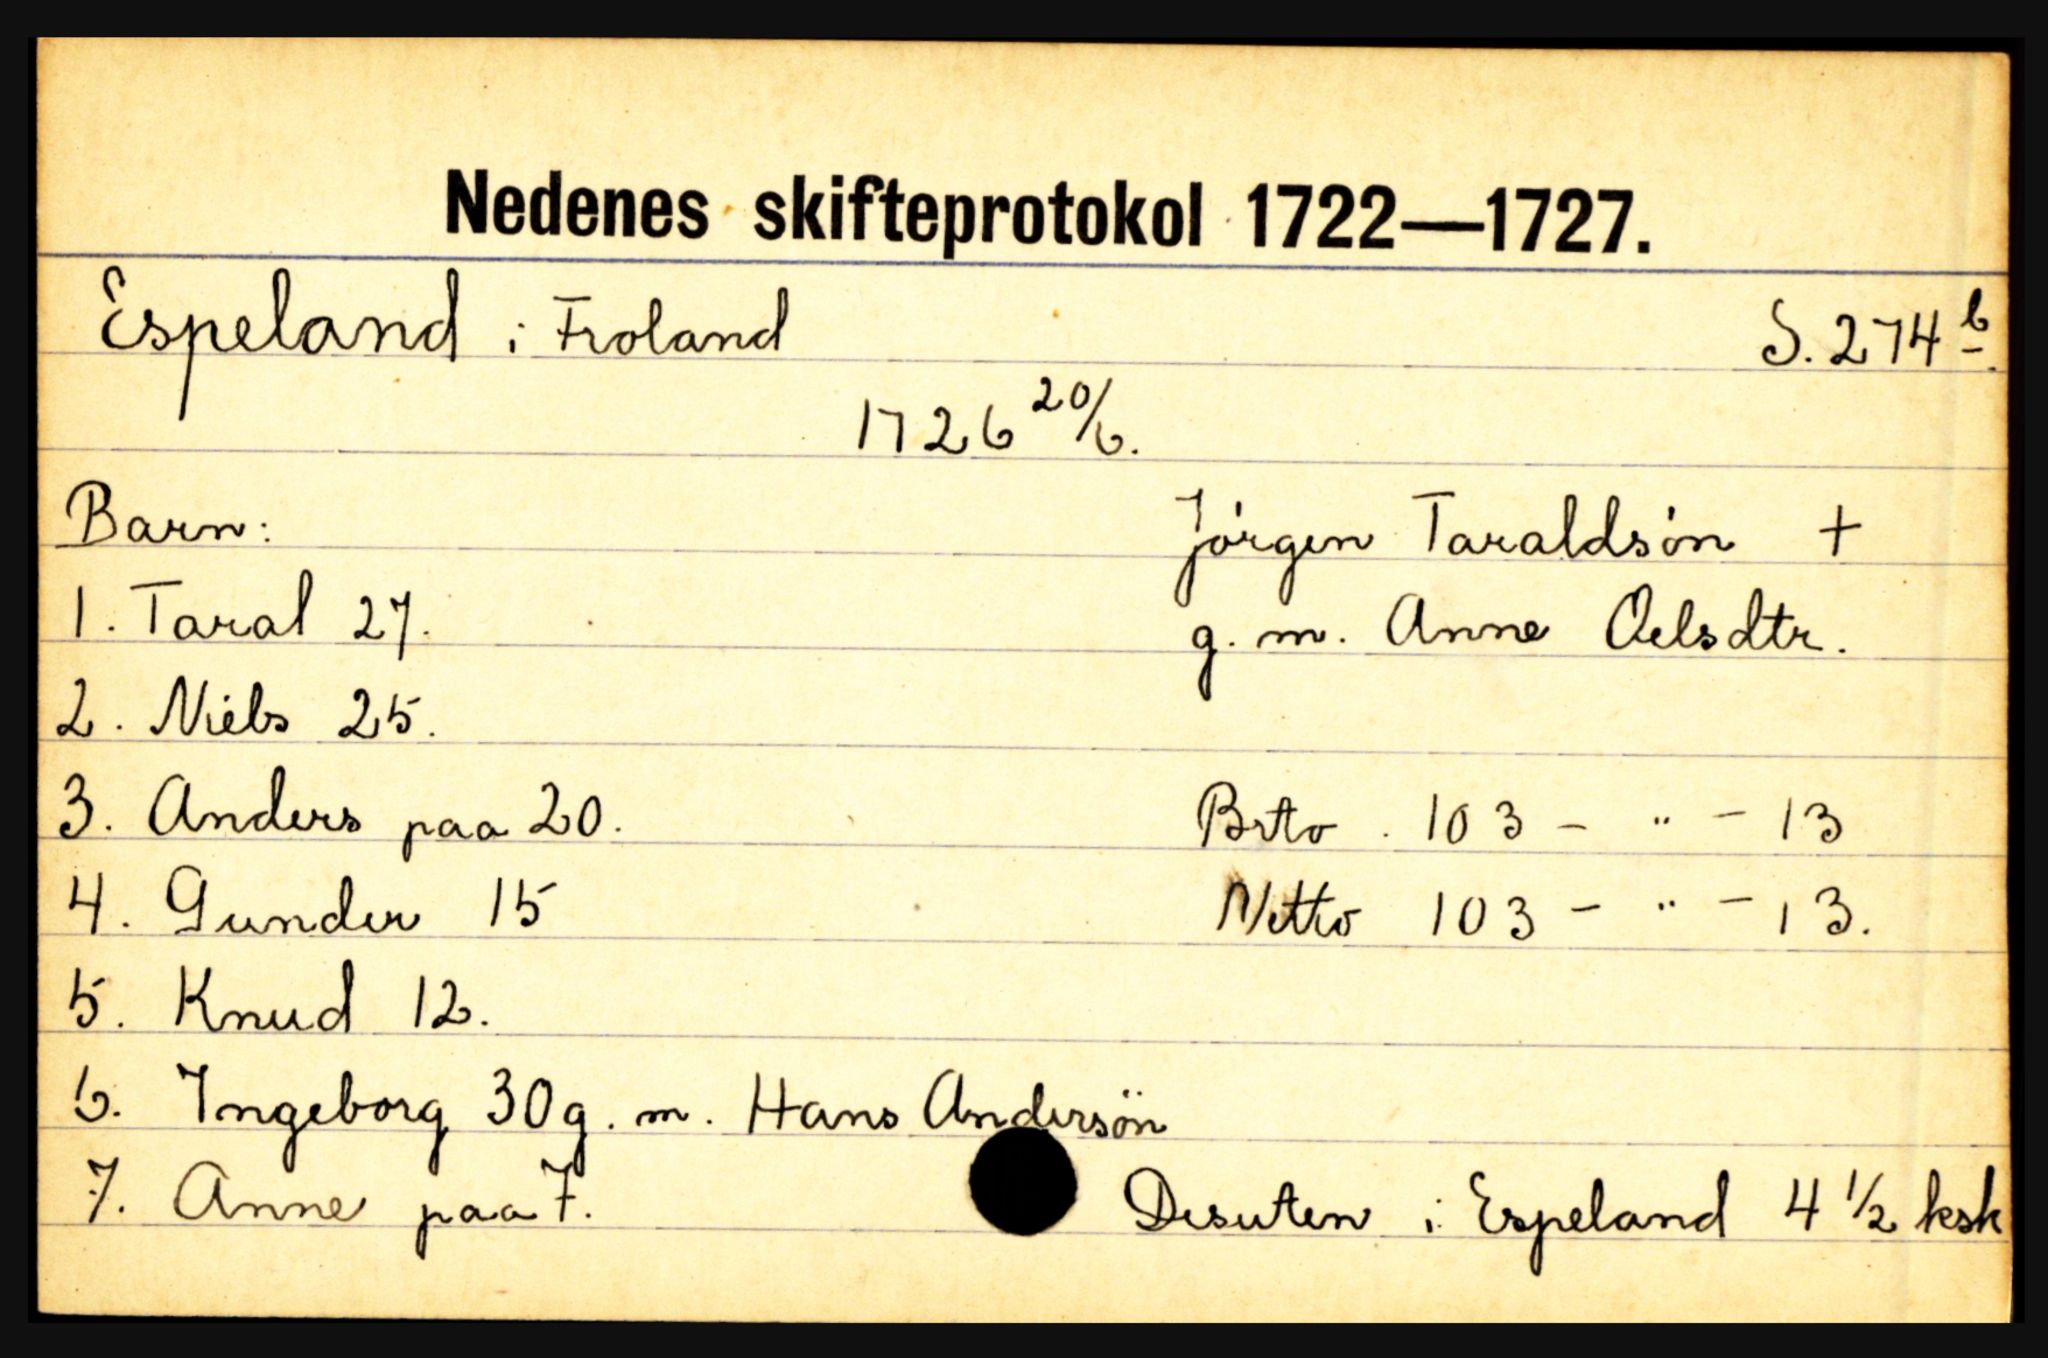 Nedenes skifteprotokol 1722—1727.
Espeland i Froland S. 274 b.
1726 20/6.
Barn: Jørgen Taraldsøn +
1. Taral 27. g. m. Anne Oelsdtr.
2. Niels 25.
3. Anders paa 20. Brto. 103 - " - 13
4. Gunder 15 Netto 103 - " - 13.
5. Knud 12.
6. Ingeborg 30 g. m. Hans Andersön
7. Anne paa 7. Desuten i Espeland 4 1/2 ksk